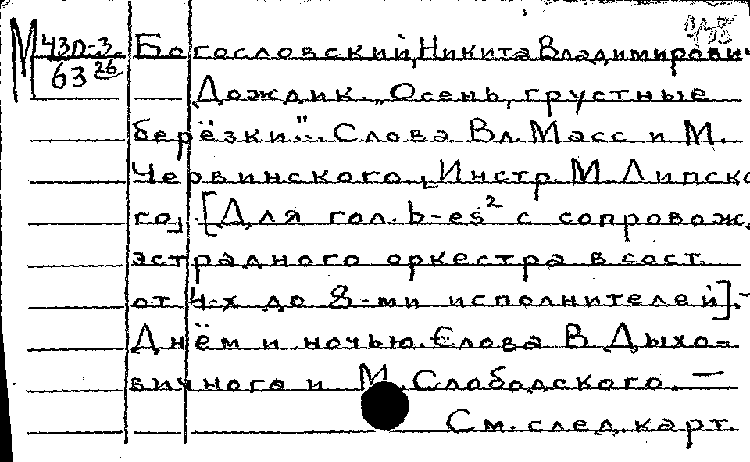 М 43п-3
63 26
Богословский, Никита Владимирович
Дождик. „Осень, грустные
берёзки"... Слова Вл. Масс и М.
Червинского., Инстр. М. Липско
го] . [Для гол. b-es² с сопровож.
эстрадного оркестра в сост.
от 4-х до 8-ми исполнителей]. -
Днём и ночью. Слова В. Дыхо=
вичного и М. Слободского. —
См. след. карт.